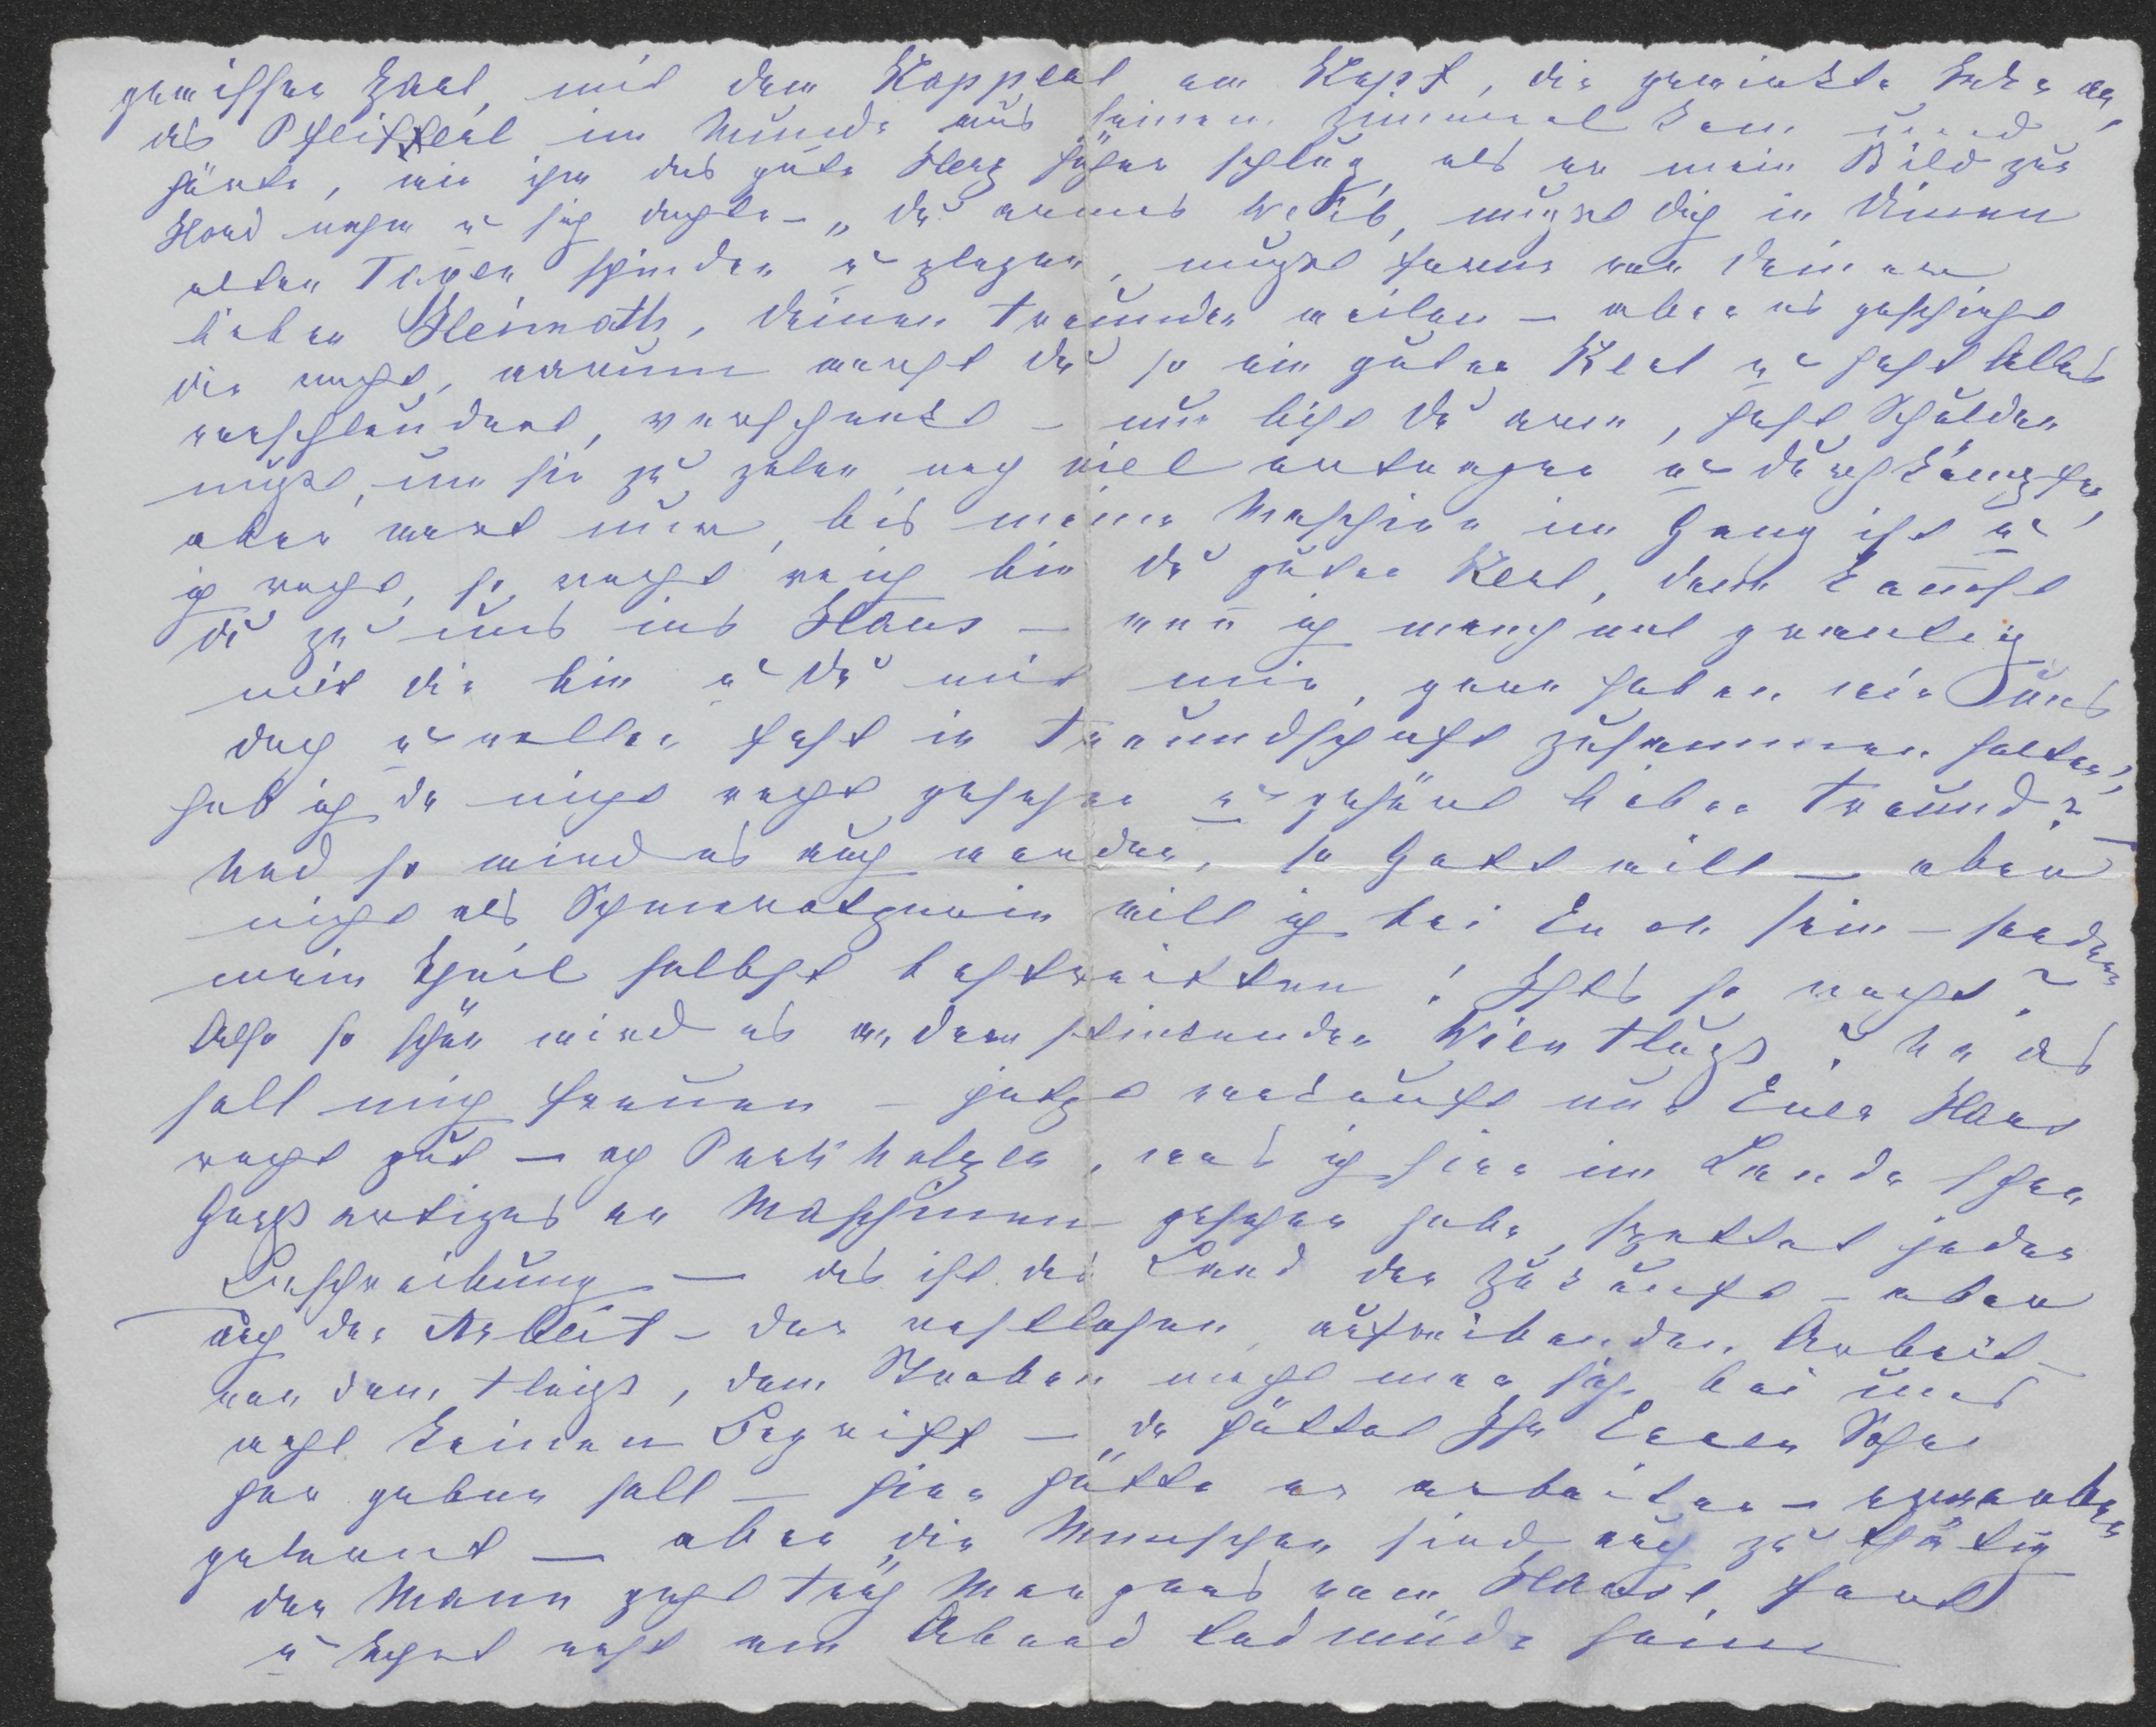 gewisser Kerl, mit dem Kapperl am Kopf, die gewirkte Jacke an,
das Pfeifferl im Munde aus seinem Zimmerl kam und
hörte, wie ihm das gute Herz höher schlug, als er mein Bild zur
Hand nahm u sich dachte – „du armes Weib, mußt dich in Deinen
alten Tagen schinden u plagen, mußt ferne von Deiner
lieben Heimath, Deinen Freunden weilen – aber es geschieht
dir recht, warum warst du so ein guter Kerl u hast Alles
verschleudert, verschenkt – nun bist Du arm, hast Schulden
mußt, um sie zu zalen noch viel ertragen u durchkämpfen,
aber wart nur, bis meine Maschine im Gang ist u
ich recht, so recht reich bin du guter Kerl, dann kannst
du zu uns ins Haus – wenn ich manchmal grantig
mit dir bin u Du mit mir, gern haben wir uns
doch u wollen fest in Freundschaft zusammen halten",
hab ich da nicht recht gesehen u gehört lieber Freund? –
Und so wird es auch werden, so Gott will – aber
nicht als Schmarotzerin will ich bei Euch sein – sondern
mein Theil selbst bestreitten! Ists so recht?
Also so schön wird es an dem stinkenden Wienfluß? Na das
soll mich freuen – jetzt verkauft nur Euer Haus
recht gut – ach Parkholzer, was ich hier im Lande schon
Großartiges an Maschinen gesehen habe, spottet jeder
Beschreibung – das ist das Land der Zukunft – aber
auch der Arbeit – der rastlosen, aufreibenden Arbeit –
von dem Fleiß, dem Streben macht man sich bei uns
wohl keinen Begriff – da hättet Ihr Euren Sohn
her geben soll – hier hätte er arbeiten – erwerben
gelernt – aber die Menschen sind auch zu thätig
der Mann geht früh Morgens vom Hause fort
u kehrt erst am Abend todmüde heim